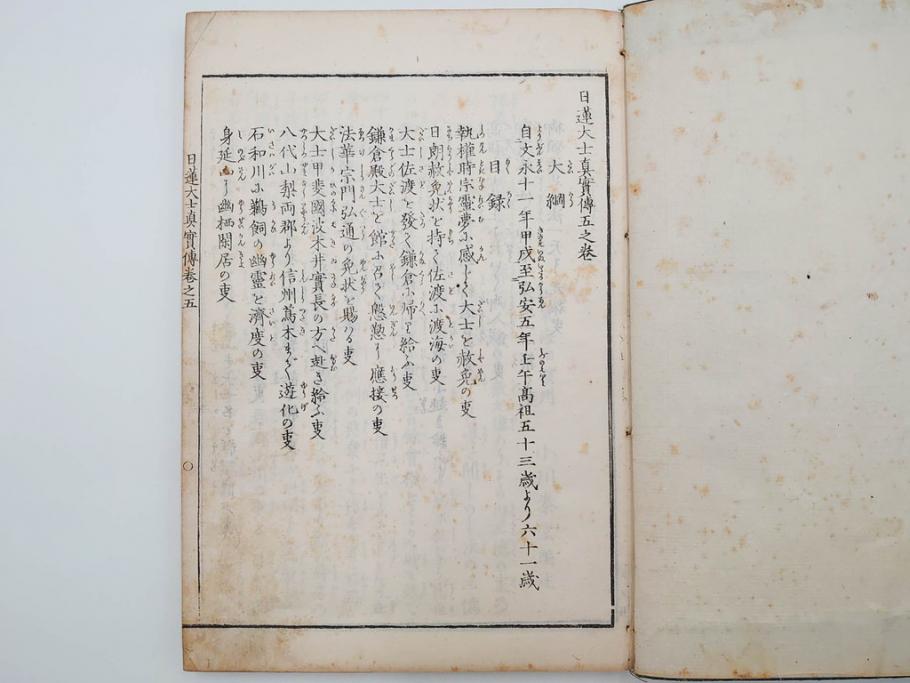 日蓮大士真實傳五之卷
大綱
自文永十一年甲戌至弘安五年壬午高祖五十三歳より六十一歳
目録
執權時宗靈夢に感じて大士を赦免の事
日朗赦免状を持て佐渡に渡海の事
大士佐渡を發て鎌倉に帰り給ふ事
鎌倉殿大士を館に召て慇懃に應接の事
法華宗門弘通の免状を賜る事
大士甲斐國波木井實長の方へ赴き給ふ事
八代山梨両郡より信州蔦木まで遊化の事
石和川に鵜飼の幽霊を濟度の事
身延山に幽栖閑居の事
日蓮大士真實傳卷之五